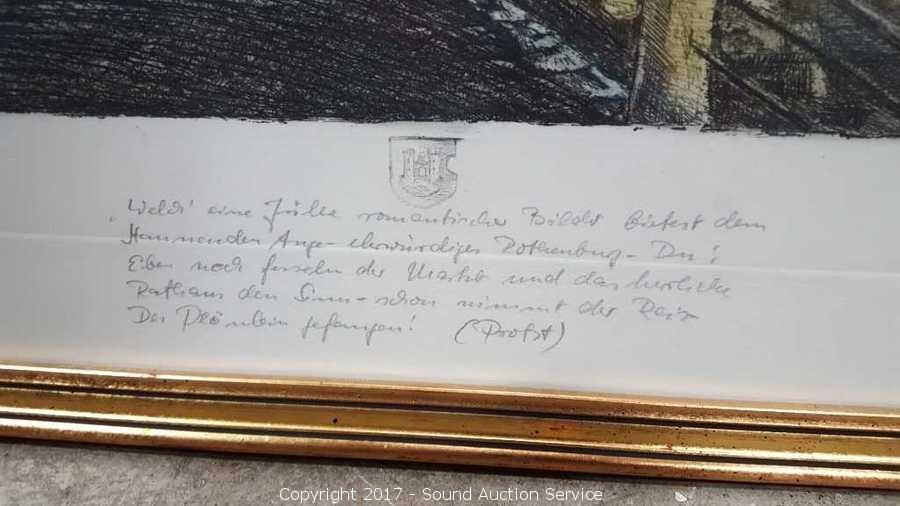 „Welch' eine Fülle romantischer Bilder bietest dem
staunenden Auge - ehrwürdiges Rothenburg - Du!
Eben noch fesseln der Markt und das herrliche
Rathaus den Sinn - schon nimmt der Reiz
Des Plönlein gefangen! (Probst)
Copyright 2017 - Sound Auction Service